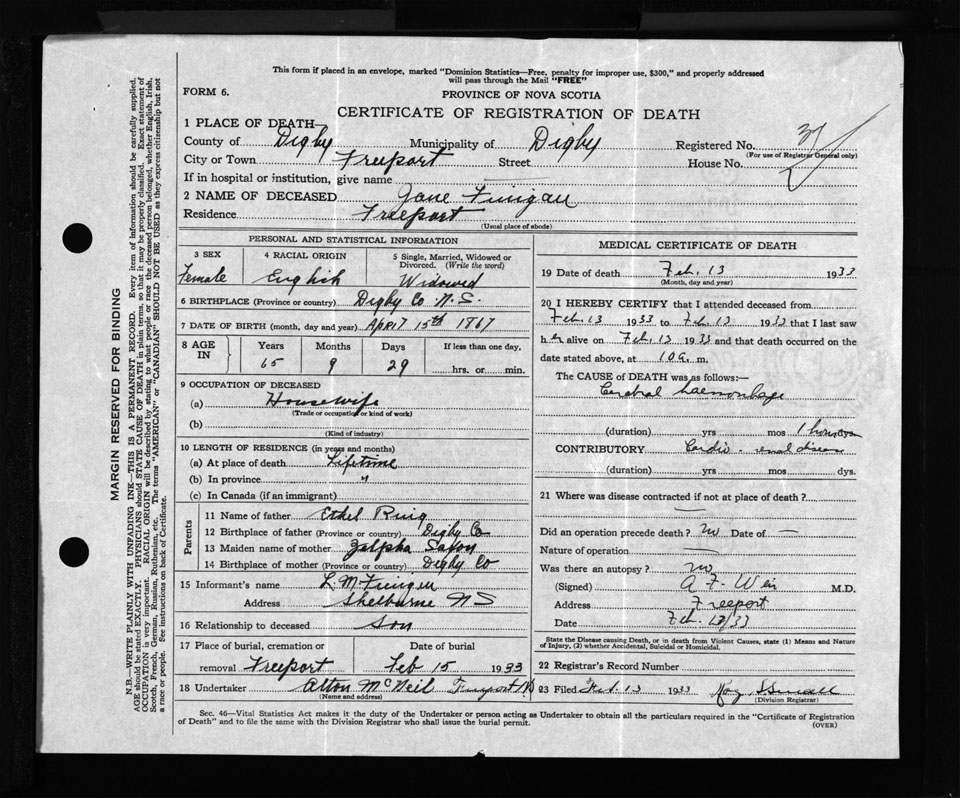 This form if placed in an envelope, marked "Dominion Statistics—Free, penalty for improper use, $300," and properly addressed
will pass through the Mail "FREE"
FORM 6.
PROVINCE OF NOVA SCOTIA
CERTIFICATE OF REGISTRATION OF DEATH
1 PLACE OF DEATH—
County of Digby Municipality of Digby Registered No.
(For use of Registrar General only)
City or Town Freeport Street House No.
If in hospital or institution, give name
2 NAME OF DECEASED Jane Finigan
Residence Freeport
(Usual place of abode)
PERSONAL AND STATISTICAL INFORMATION
3 SEX 4 RACIAL ORIGIN 5 Single, Married, Widowed or
Divorced. (Write the word)
Female English Widowed
6 BIRTHPLACE (Province or country) Digby Co N.S.
7 DATE OF BIRTH (month, day and year) April 15th 1867
8 AGE IN Years Months Days If less than one day,
65 9 29 hrs. or min.
9 OCCUPATION OF DECEASED
(a) Housewife
(Trade or occupation or kind of work)
(b)
(Kind of industry)
10 LENGTH OF RESIDENCE (in years and months)
(a) At place of death Lifetime
(b) In province "
(c) In Canada (if an immigrant)
Parents
11 Name of father Ethel Ring
12 Birthplace of father (Province or country) Digby Co
13 Maiden name of mother
14 Birthplace of mother (Province or country) Digby Co
15 Informant's name L. M. Finigan
Address Shelburne NS
16 Relationship to deceased Son
17 Place of burial, cremation or Date of burial
removal Freeport Feb 15 1933
18 Undertaker Alton McNeil Freeport NS
(Name and address)
MEDICAL CERTIFICATE OF DEATH
19 Date of death Feb. 13 1933
(Month, day and year)
20 I HEREBY CERTIFY that I attended deceased from
Feb. 13 1933 to Feb. 13 1933 that I last saw
her alive on Feb. 13 1933 and that death occurred on the
date stated above, at 10 a. m.
The CAUSE of DEATH was as follows:—
Cerebral haemorrhage
(duration) yrs mos 1 hour dys
CONTRIBUTORY Cardio-renal disease
(duration) yrs mos dys.
21 Where was disease contracted if not at place of death?
Did an operation precede death? no Date of
Nature of operation
Was there an autopsy? no
(Signed) A F Weir M.D.
Address Freeport
Date Feb. 13/33
State the Disease causing Death, or in death from Violent Causes, state (1) Means and Nature
of Injury, (2) whether Accidental, Suicidal or Homicidal.
22 Registrar's Record Number
23 Filed Feb. 13 1933
(Division Registrar)
Sec. 46—Vital Statistics Act makes it the duty of the Undertaker or person acting as Undertaker to obtain all the particulars required in the "Certificate of Registration
of Death" and to file the same with the Division Registrar who shall issue the burial permit.
(OVER)
MARGIN RESERVED FOR BINDING
N.B.—WRITE PLAINLY WITH UNFADING INK—THIS IS A PERMANENT RECORD. Every item of information should be carefully supplied.
AGE should be stated EXACTLY. PHYSICIANS should STATE CAUSE OF DEATH in plain terms, so that it may be properly classified. Exact statement of
OCCUPATION is very important. RACIAL ORIGIN will be described by stating to what people or race the deceased person belonged, whether English, Irish,
Scotch, French, German, Russian, Ruthenian, etc. The terms "AMERICAN" or "CANADIAN" SHOULD NOT BE USED as they express citizenship but not
a race or people. See instructions on back of Certificate.